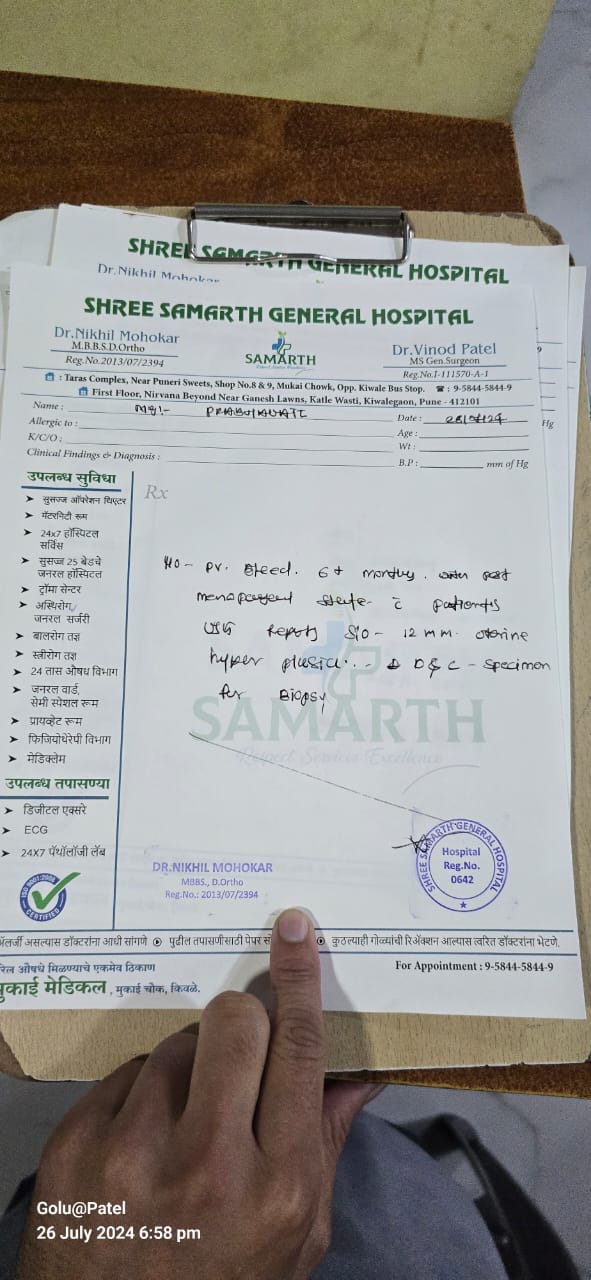 SHREE SAMARTH GENERAL HOSPITAL
Dr. Nikhil Mohokar
SHREE SAMARTH GENERAL HOSPITAL
Dr. Nikhil Mohokar
M.B.B.S.D.Ortho
Reg.No.2013/07/2394
SAMARTH
Dr. Vinod Patel
MS Gen.Surgeon
Reg.No.I-111570-A-1
: Taras Complex, Near Puneri Sweets, Shop No.8 & 9, Mukai Chowk, Opp. Kiwale Bus Stop. ☎ : 9-5844-5844-9
First Floor, Nirvana Beyond Near Ganesh Lawns, Katle Wasti, Kiwalegaon, Pune - 412101
Name : Date :
Allergic to : Age :
K/C/O : Wt :
Clinical Findings & Diagnosis : B.P: mm of Hg
Hg
उपलब्ध सुविधा
Rx
➤ सुसज्ज ऑपरेशन थिएटर
➤ मॅटरनिटी रूम
➤ 24x7 हॉस्पिटल
सर्विस
➤ सुसज्ज 25 बेडचे
जनरल हॉस्पिटल
➤ ट्रॉमा सेन्टर
➤ अस्थिरोग/
जनरल सर्जरी
➤ बालरोग तज्ञ
➤ स्त्रीरोग तज्ञ
➤ 24 तास औषध विभाग
➤ जनरल वार्ड,
सेमी स्पेशल रूम
➤ प्रायव्हेट रूम
➤ फिजियोथेरेपी विभाग
➤ मेडिक्लेम
उपलब्ध तपासण्या
➤ डिजीटल एक्सरे
➤ ECG
➤ 24X7 पॅथॉलॉजी लॅब
H/O - PV. Bleed. 6+ months. post
menopausal state - c̄ patient's
USG Reports S/O - 12 mm. uterine
hyper plasia. - D & C - specimen
for Biopsy
SAMARTH
Respect Services Excellence
DR.NIKHIL MOHOKAR
MBBS., D.Ortho
Reg.No.: 2013/07/2394
SHREE SAMARTH GENERAL HOSPITAL
Hospital
Reg.No.
0642
ISO 9001:2008
CERTIFIED
असल्यास डॉक्टरांना आधी सांगणे ⊙ पुढील तपासणीसाठी पेपर ⊙ कुठल्याही गोळ्यांची रिॲक्शन आल्यास त्वरित डॉक्टरांना भेटणे.
औषधे मिळण्याचे एकमेव ठिकाण
For Appointment : 9-5844-5844-9
मुकाई मेडिकल, मुकाई चौक, किवळे.
Golu@Patel
26 July 2024 6:58 pm